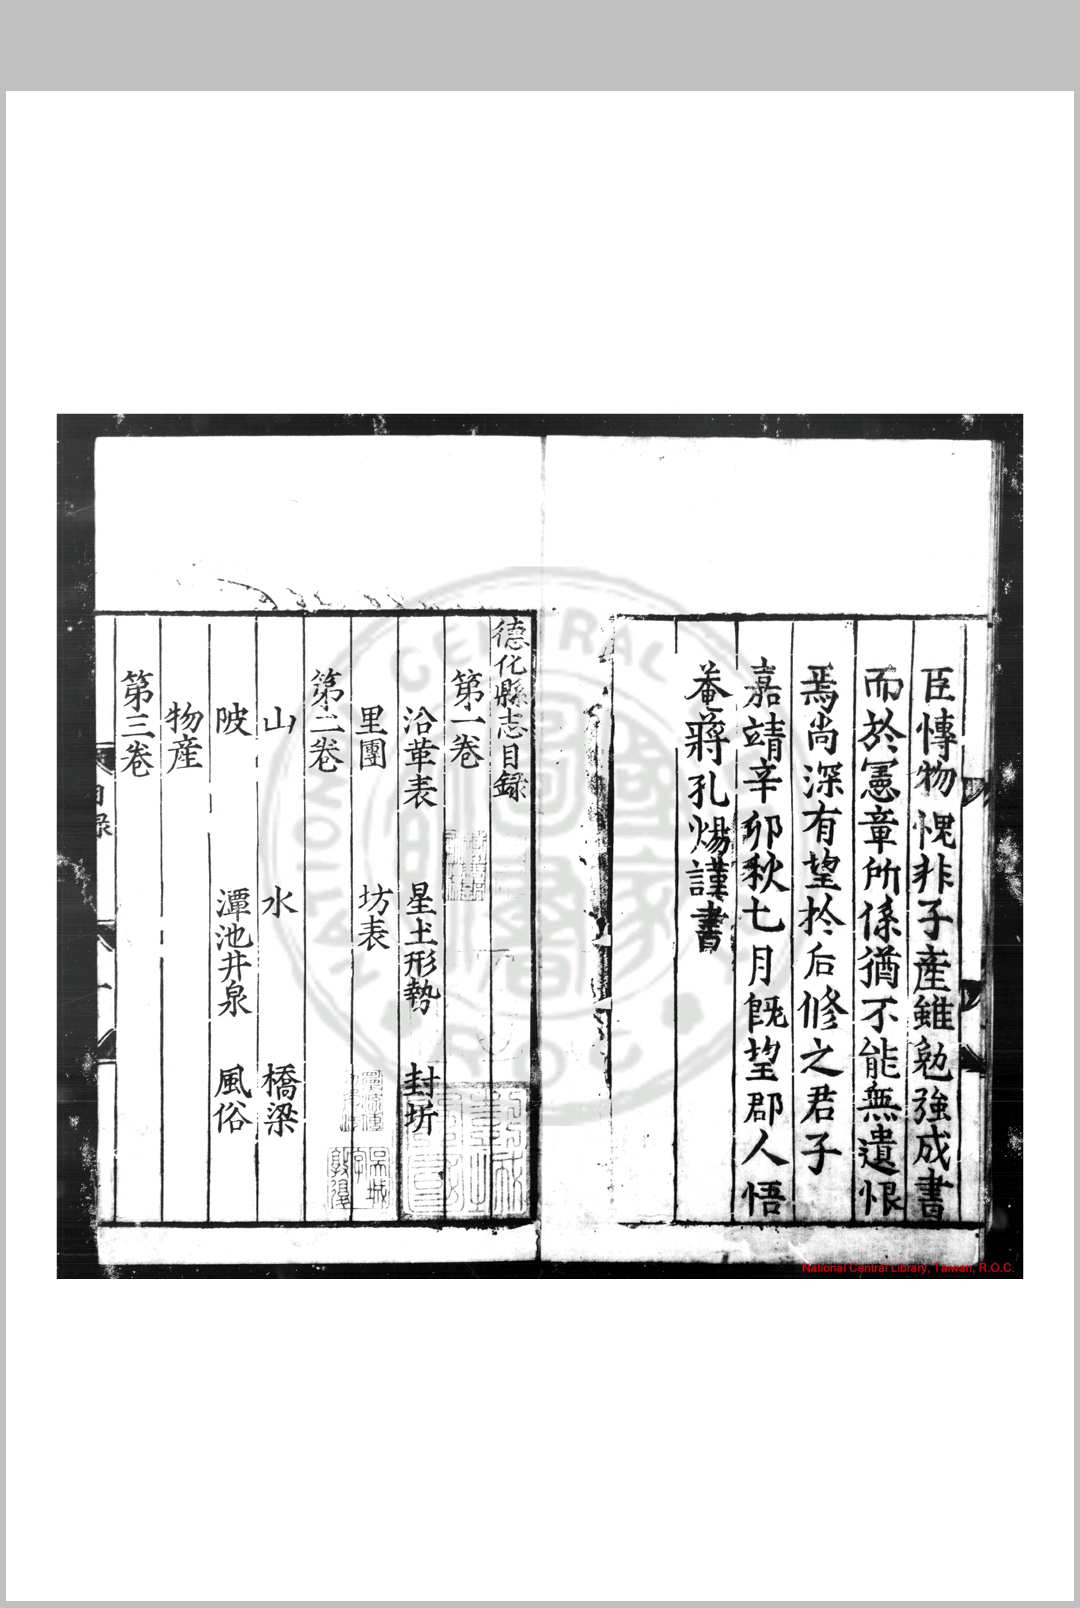 臣愽物愧非子產雖勉強成書
而於憲章所係猶不能無遺恨
焉尚深有望於后修之君子
嘉靖辛卯秋七月旣望郡人悟
菴蔣孔煬謹書
德化縣志目録
第一卷
沿革表 星土形勢 封圻
里團 坊表
第二卷
山 水 橋梁
陂 潭池井泉 風俗
物産
第三卷
目録
National Central Library, Taiwan, R.O.C.